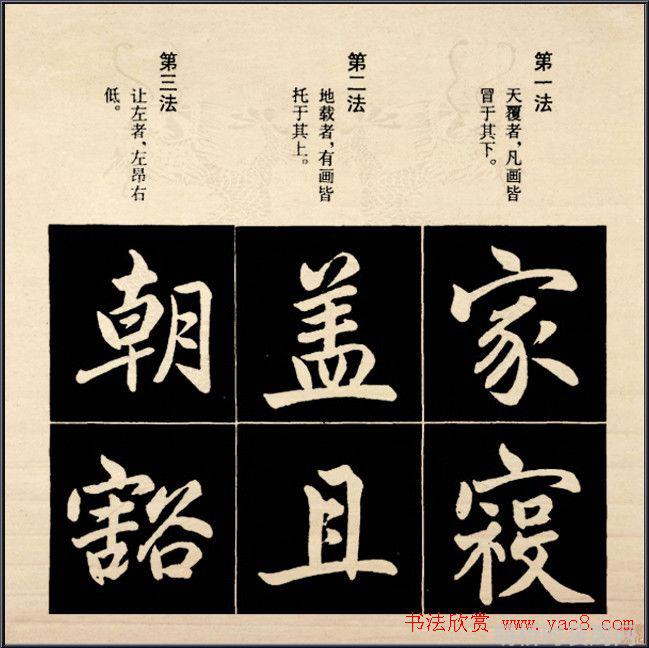 第一法
天覆者，凡画皆
冒于其下。
第二法
地载者，有画皆
托于其上。
第三法
让左者、左昂右
低。
家
盖且
朝豁
书法欣赏 www.yac8.com